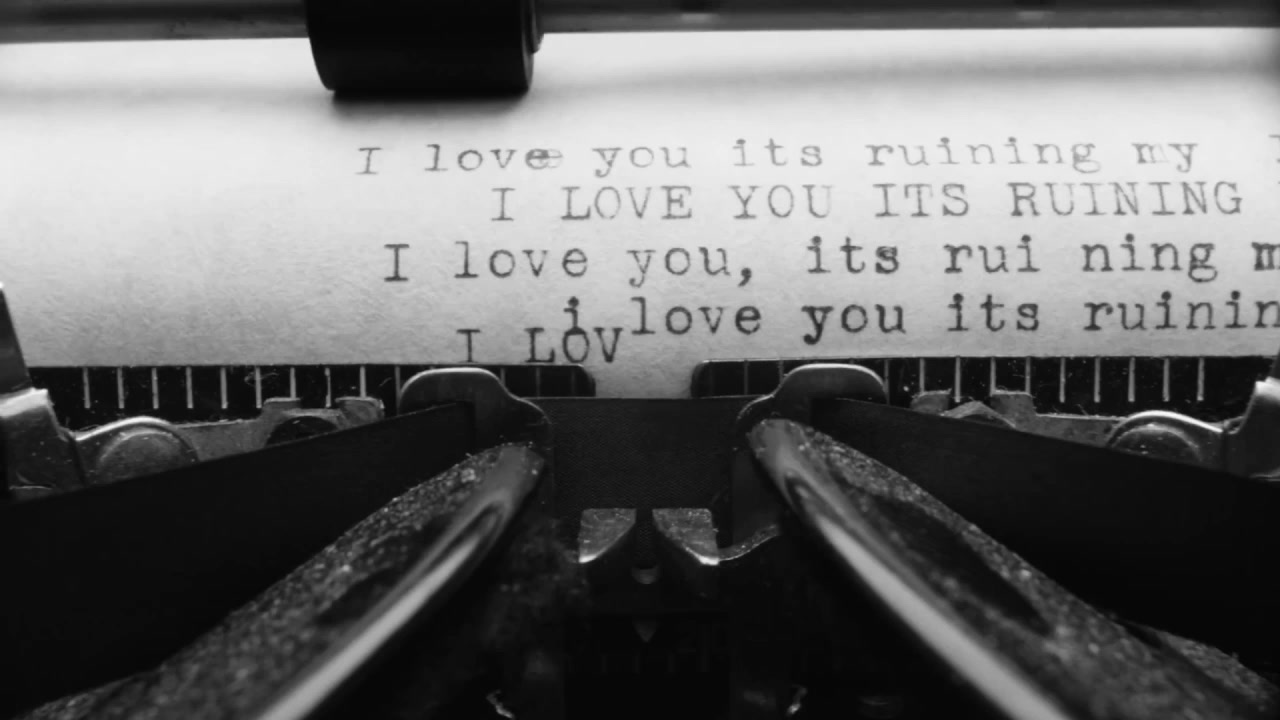 I love you its ruining my
I LOVE YOU ITS RUINING
I love you, its rui ning m
i love you its ruinin
I LOV